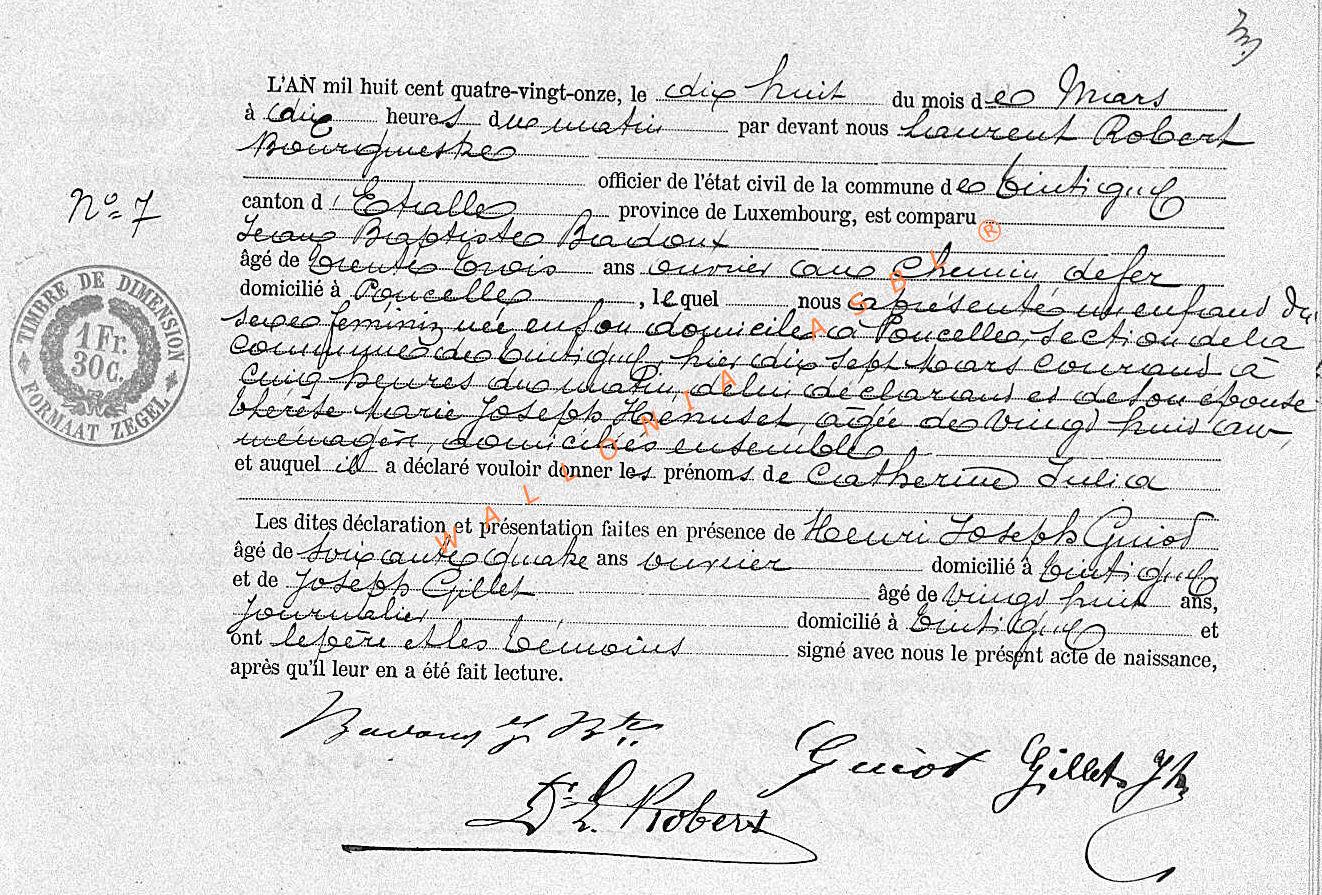 3
L'AN mil huit cent quatre-vingt-onze, le dix huit du mois de Mars
à dix heures du matin par devant nous Laurent Robert
Bourgmestre
officier de l'état civil de la commune de Tintigny
N° 7
canton d'Etalle province de Luxembourg, est comparu
Jean Baptiste
âgé de trente trois ans ouvrier au Chemin de fer
domicilié à Poncelle, lequel nous a présenté un enfant du
sexe féminin née en son domicile à Poncelle, section de la
commune de Tintigny, hier dix sept Mars courant à
cinq heures du matin, de lui déclarant et de son épouse
Thérèse Marie Joseph Henuset, âgée de vingt huit ans,
ménagère, domiciliés ensemble
et auquel il a déclaré vouloir donner les prénoms de Catherine Julia
Les dites déclaration et présentation faites en présence de Henri Joseph Guiot
âgé de soixante quatre ans ouvrier domicilié à Tintigny
et de Joseph Gillet âgé de vingt huit ans,
journalier domicilié à Tintigny et
ont le père et les témoins signé avec nous le présent acte de naissance,
après qu'il leur en a été fait lecture.
J Bte
Guiot Gillet Jh
Dr L. Robert
TIMBRE DE DIMENSION
1 Fr.
30 C.
FORMAAT ZEGEL
WALLONIA ASBL ®